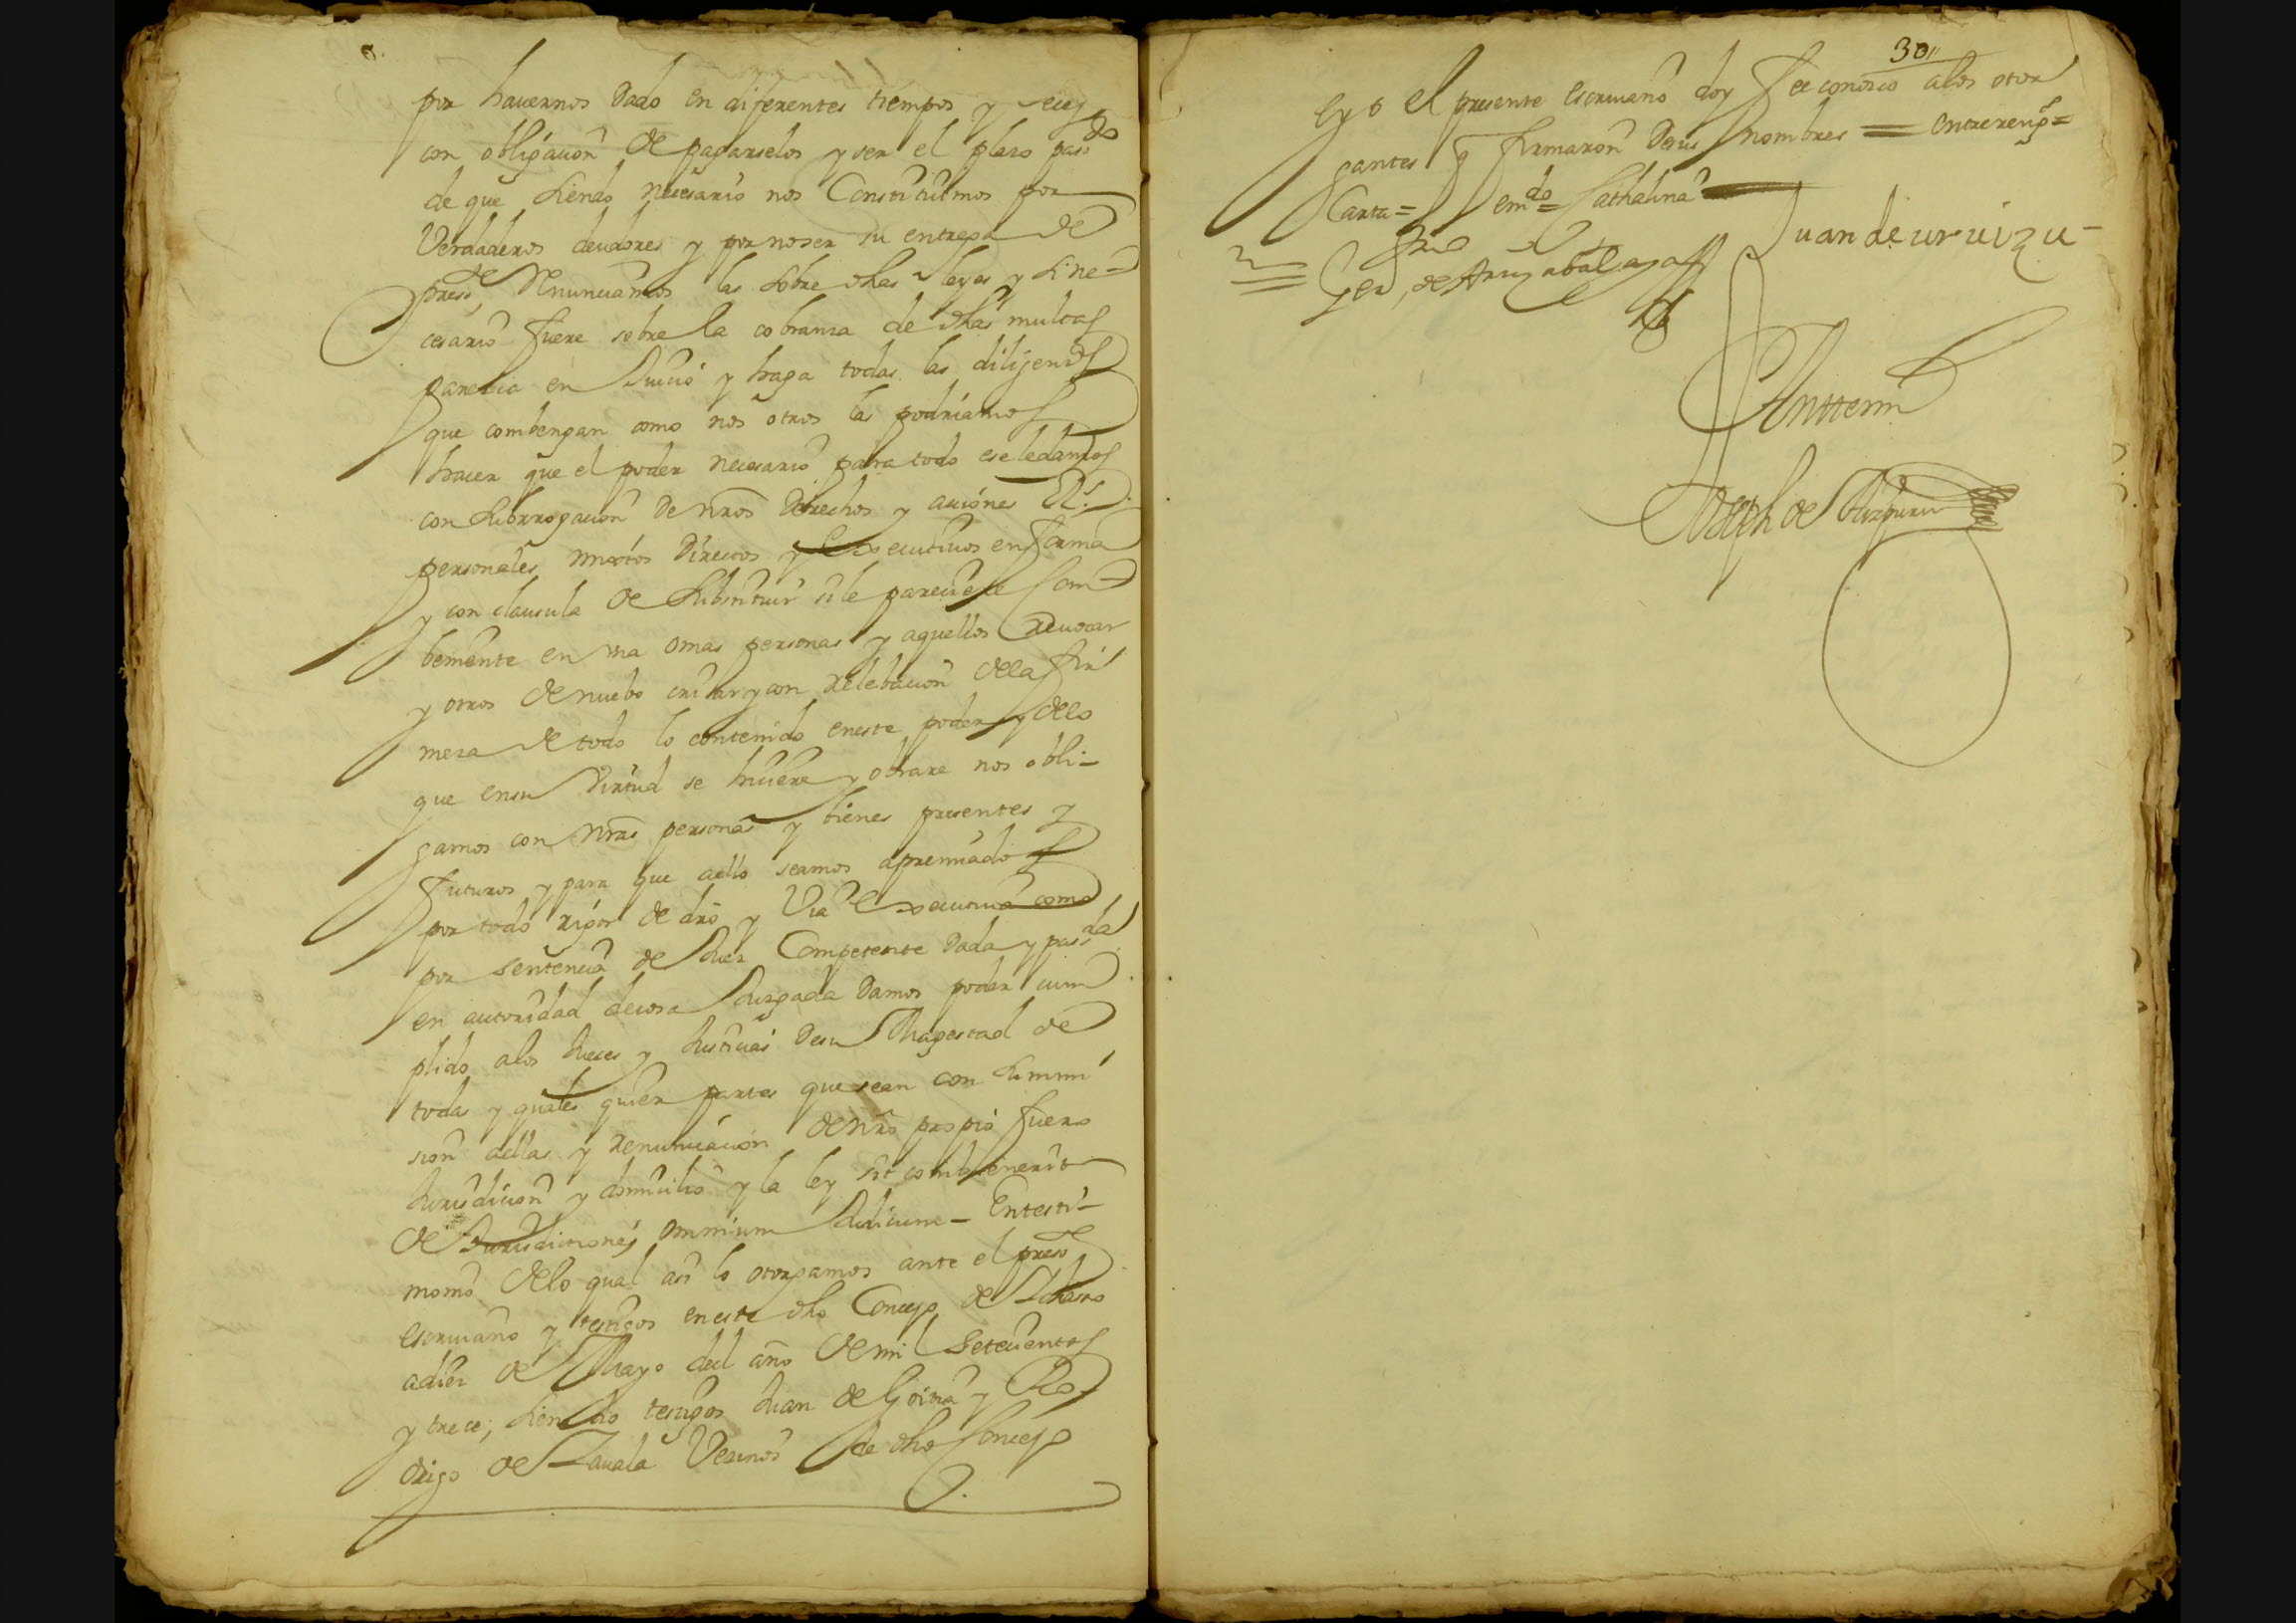 por havernos dado en diferentes tiempos y
con obligacion de pagarselos y ser el plazo pasdo
de que siendo necesario nos Constituimos por
Verdaderos deudores y por no ser su entrega de
presste Renunciamos las sobre dhas leyes y si ne-
cesario fuere sobre la cobranza de dhas multas
parezca en Juicio y haga todas las dilijencias
que combengan como nos otros las podriamos
hacer que el poder necesario para todo ese le damos
con subrrogacion de nros Derechos y aciones Rs
personales mixtos Directos y Executivos en forma
y con clausula de substituir si le pareciese
bemente en una o mas personas y aquellos revocar
y otros de nuebo criar y con relebacion de la fir
meza de todo lo contenido en este poder y de lo
que en su Virtud se hiciere y obrare nos obli-
gamos con nras personas y bienes presentes y
futuros y para que a ello seamos apremiados
por todo rigor de dro y Via Executiva como
por sentencia de Juez Competente dada y passda
en autoridad de cosa Juzgada Damos poder cum
plido a los Jueces y Justicias de su Magestad de
todas y quales quier partes que sean con summi
sion a ellas y renunciacion de nro propio fuero
Jurisdicion y domicilio y la ley sit combenerit
de Jurisdictiones omnium Judicum - En testi-
monio de lo qual asi lo otorgamos ante el presste
escrivano y testigos en este dho Concejo de
a diez de Mayo del año de mil Setecientos
y trece; siendo testigos Juan de Goitia y Ro
drigo de Zavala Vecinos de dho Concejo
30
e yo el presente escrivano doy fee conosco a los otor
gantes q firmaron de sus nombres = entrereng=
Carta = emdo = Cathalina
Juan de uruizu
de Aruzabalaga
Ante mi
Joseph de Aizpuru